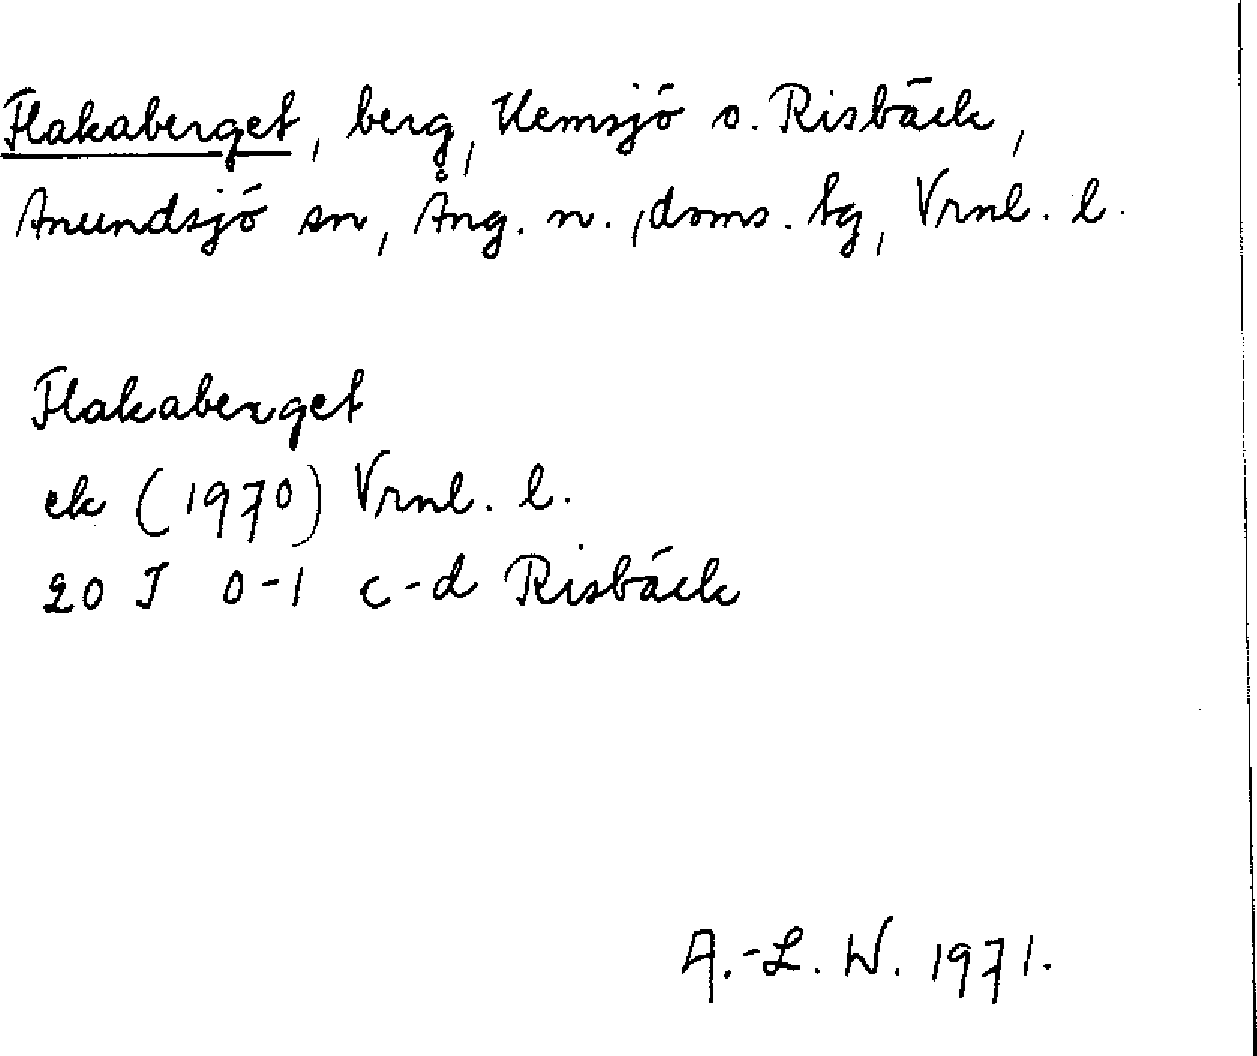 Flakaberget, berg, Hemsjö o. Risbäck,
Anundsjö sn, Ång. n., doms. tg, Vrnl. l.
Flakaberget
ek (1970) Vrnl. l.
20 J 0-1 c-d Risbäck
A.-L. W. 1971.